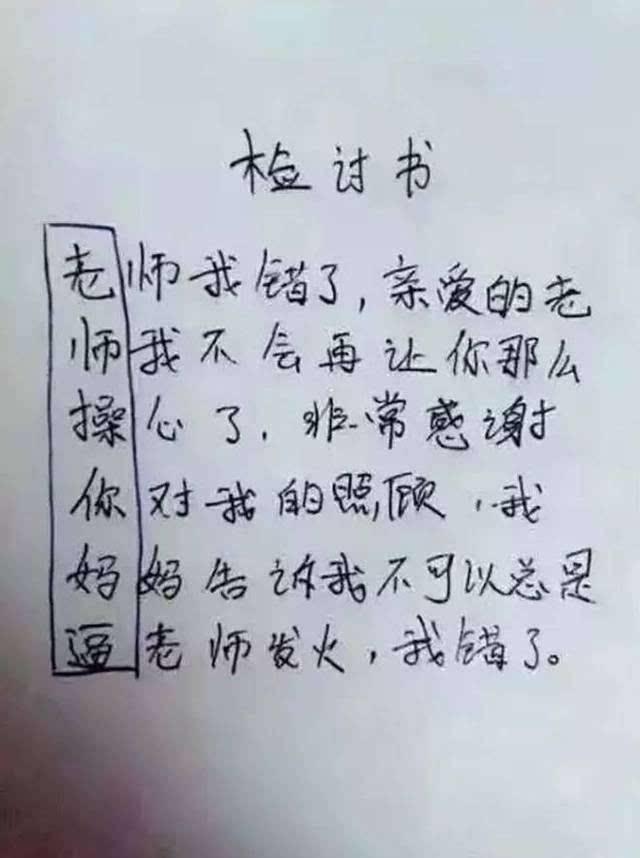 检讨书
老师我错了,亲爱的老
师我不会再让你那么
操心了,非常感谢
你对我的照顾,我
妈妈告诉我不可以总是
逼老师发火,我错了。